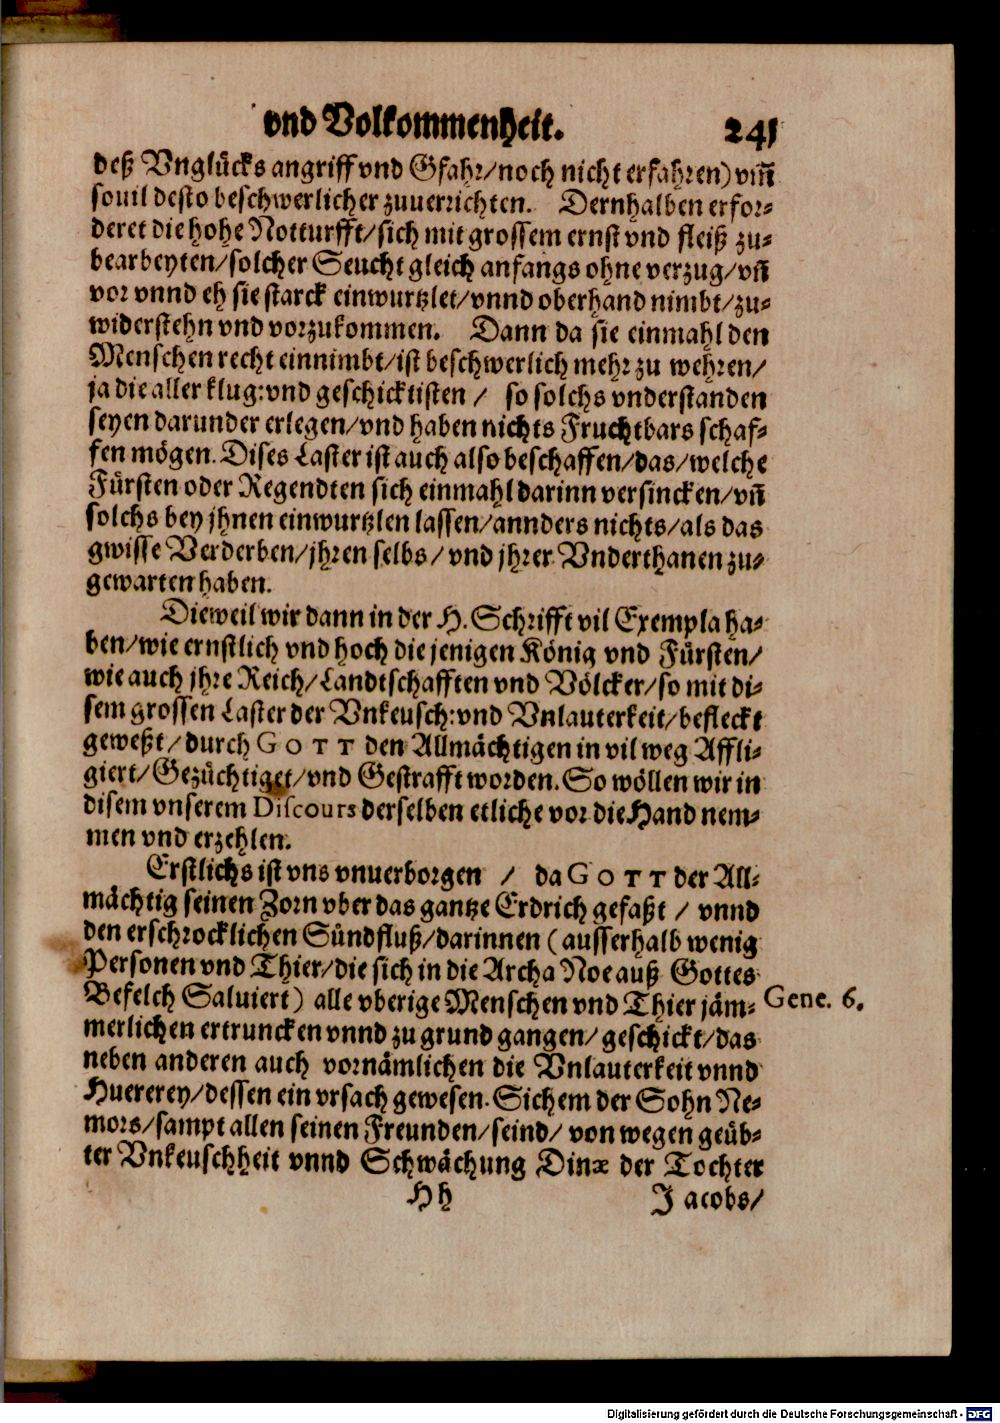 vnd Volkommenheit. 241
deß Vnglücks angriff vnd Gfahr/noch nicht erfahren) vm̃
souil desto beschwerlicher zuuerrichten. Dernhalben erfor⸗
deret die hohe Notturfft/sich mit grossem ernst vnd fleiß zu⸗
bearbeyten/solcher Seucht gleich anfangs ohne verzug/vñ
vor vnnd eh sie starck einwurtzlet/vnnd oberhand nimbt/zu⸗
widerstehn vnd vorzukommen. Dann da sie einmahl den
Menschen recht einnimbt/ist beschwerlich mehr zu wehren/
ja die aller klug:vnd geschicktisten / so solchs vnderstanden
seyen darunder erlegen/vnd haben nichts Fruchtbars schaf⸗
fen mögen. Dises Laster ist auch also beschaffen/das/welche
Fürsten oder Regendten sich einmahl darinn versincken/vñ
solchs bey jhnen einwurtzlen lassen/annders nichts/als das
gwisse Verderben/jhren selbs/ vnd jhrer Vnderthanen zu⸗
gewarten haben.
Dieweil wir dann in der H. Schrifft vil Exempla ha⸗
ben/wie ernstlich vnd hoch die jenigen König vnd Fürsten/
wie auch jhre Reich/Landtschafften vnd Völcker/so mit di⸗
sem grossen Laster der Vnkeusch:vnd Vnlauterkeit/befleckt
geweßt/durch GOTT den Allmächtigen in vil weg Affli⸗
giert/Gezüchtiget/vnd Gestrafft worden. So wöllen wir in
disem vnserem Discours derselben etliche vor die Hand nem⸗
men vnd erzehlen.
Erstlichs ist vns vnuerborgen / da GOTT der All⸗
mächtig seinen Zorn vber das gantze Erdrich gefaßt / vnnd
den erschrocklichen Sündfluß/darinnen (ausserhalb wenig
Personen vnd Thier/die sich in die Archa Noe auß Gottes
Befelch Saluiert) alle vberige Menschen vnd Thier jäm⸗ Gene. 6.
merlichen ertruncken vnnd zu grund gangen/ geschickt/das
neben anderen auch vornämlichen die Vnlauterkeit vnnd
Huererey/dessen ein vrsach gewesen. Sichem der Sohn Ne⸗
mors/sampt allen seinen Freunden/seind/ von wegen geüb⸗
ter Vnkeuschheit vnnd Schwächung Dinæ der Tochter
Hh Jacobs/
Digitalisierung gefördert durch die Deutsche Forschungsgemeinschaft - DFG